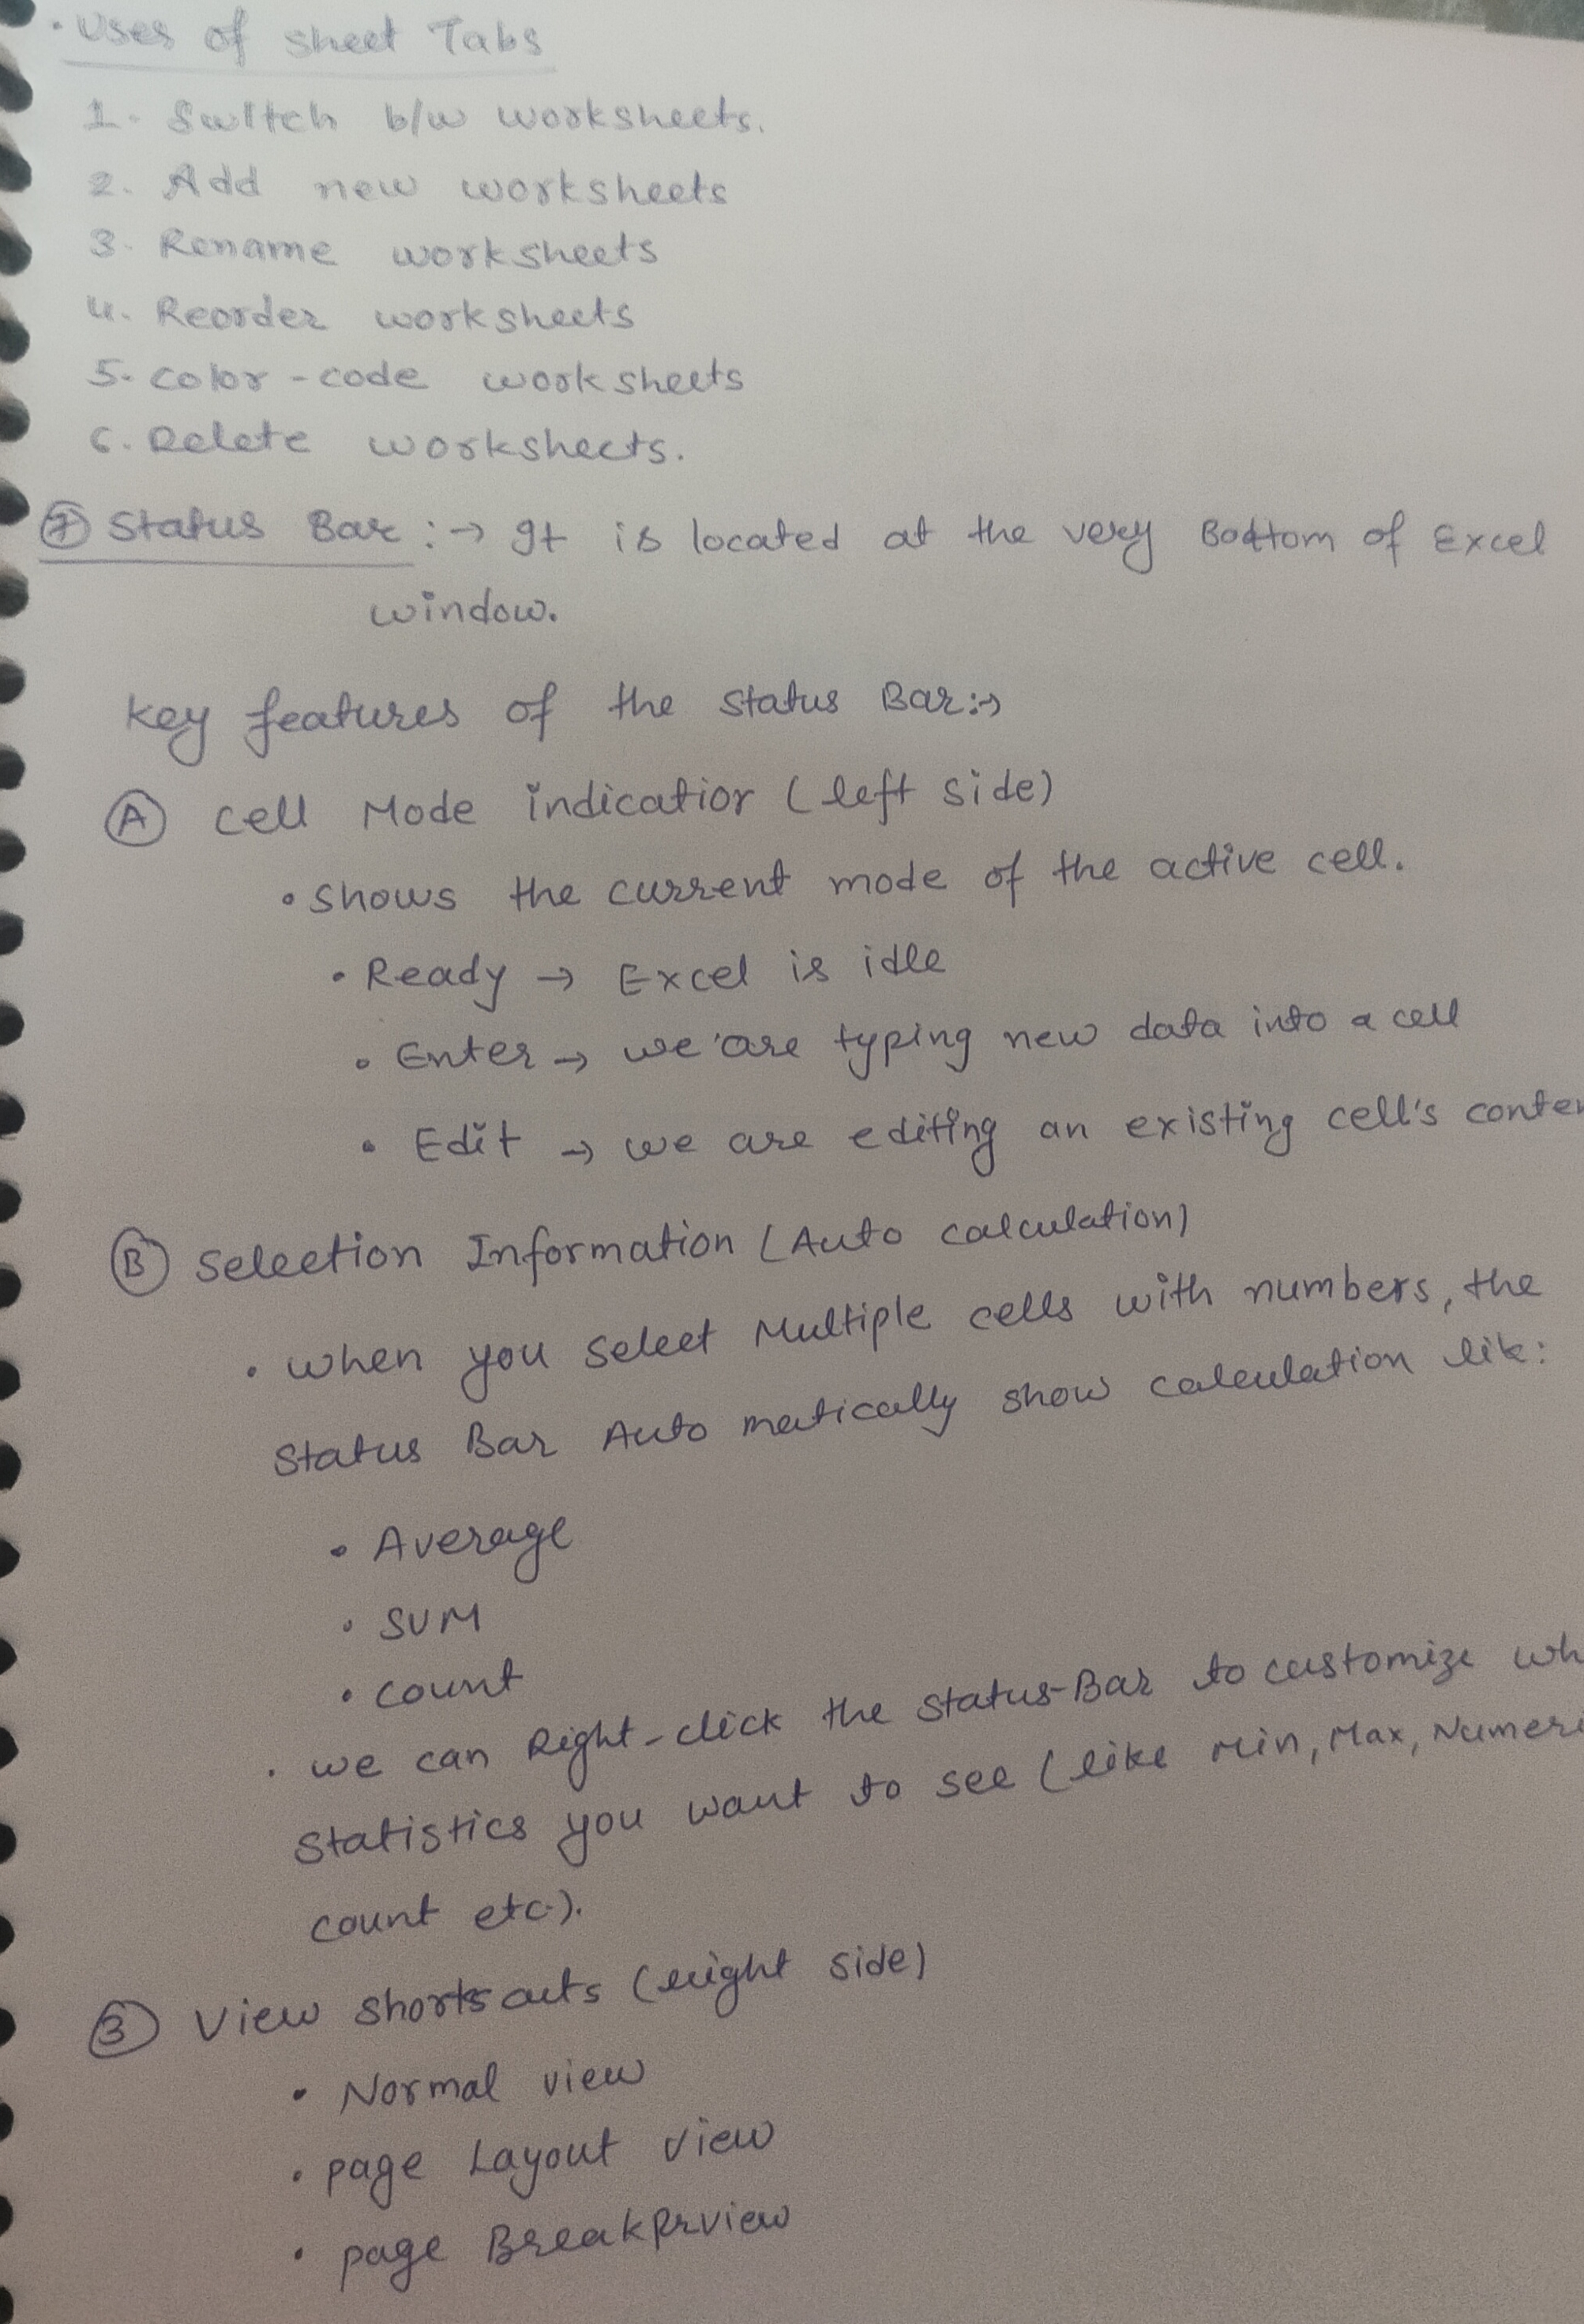 • Uses of Sheet Tabs
1. Switch b/w worksheets.
2. Add new worksheets
3. Rename worksheets
4. Reorder worksheets
5. Color-code worksheets
6. Delete worksheets.
⑦ Status Bar :→ It is located at the very Bottom of Excel
window.
Key features of the Status Bar:→
Ⓐ Cell Mode indicatior (left side)
• Shows the current mode of the active cell.
• Ready → Excel is idle
• Enter → we are typing new data into a cell
• Edit → we are editing an existing cell's conten
Ⓑ Selection Information (Auto calculation)
• When you select Multiple cells with numbers, the
Status Bar Auto matically show calculation lik:
• Average
• SUM
• Count
• we can Right-click the Status-Bar to customize wh
Statistics you want to see (like Min, Max, Numeri
count etc.).
③ View Shortscuts (right side)
• Normal view
• page Layout view
• page BreakPrview